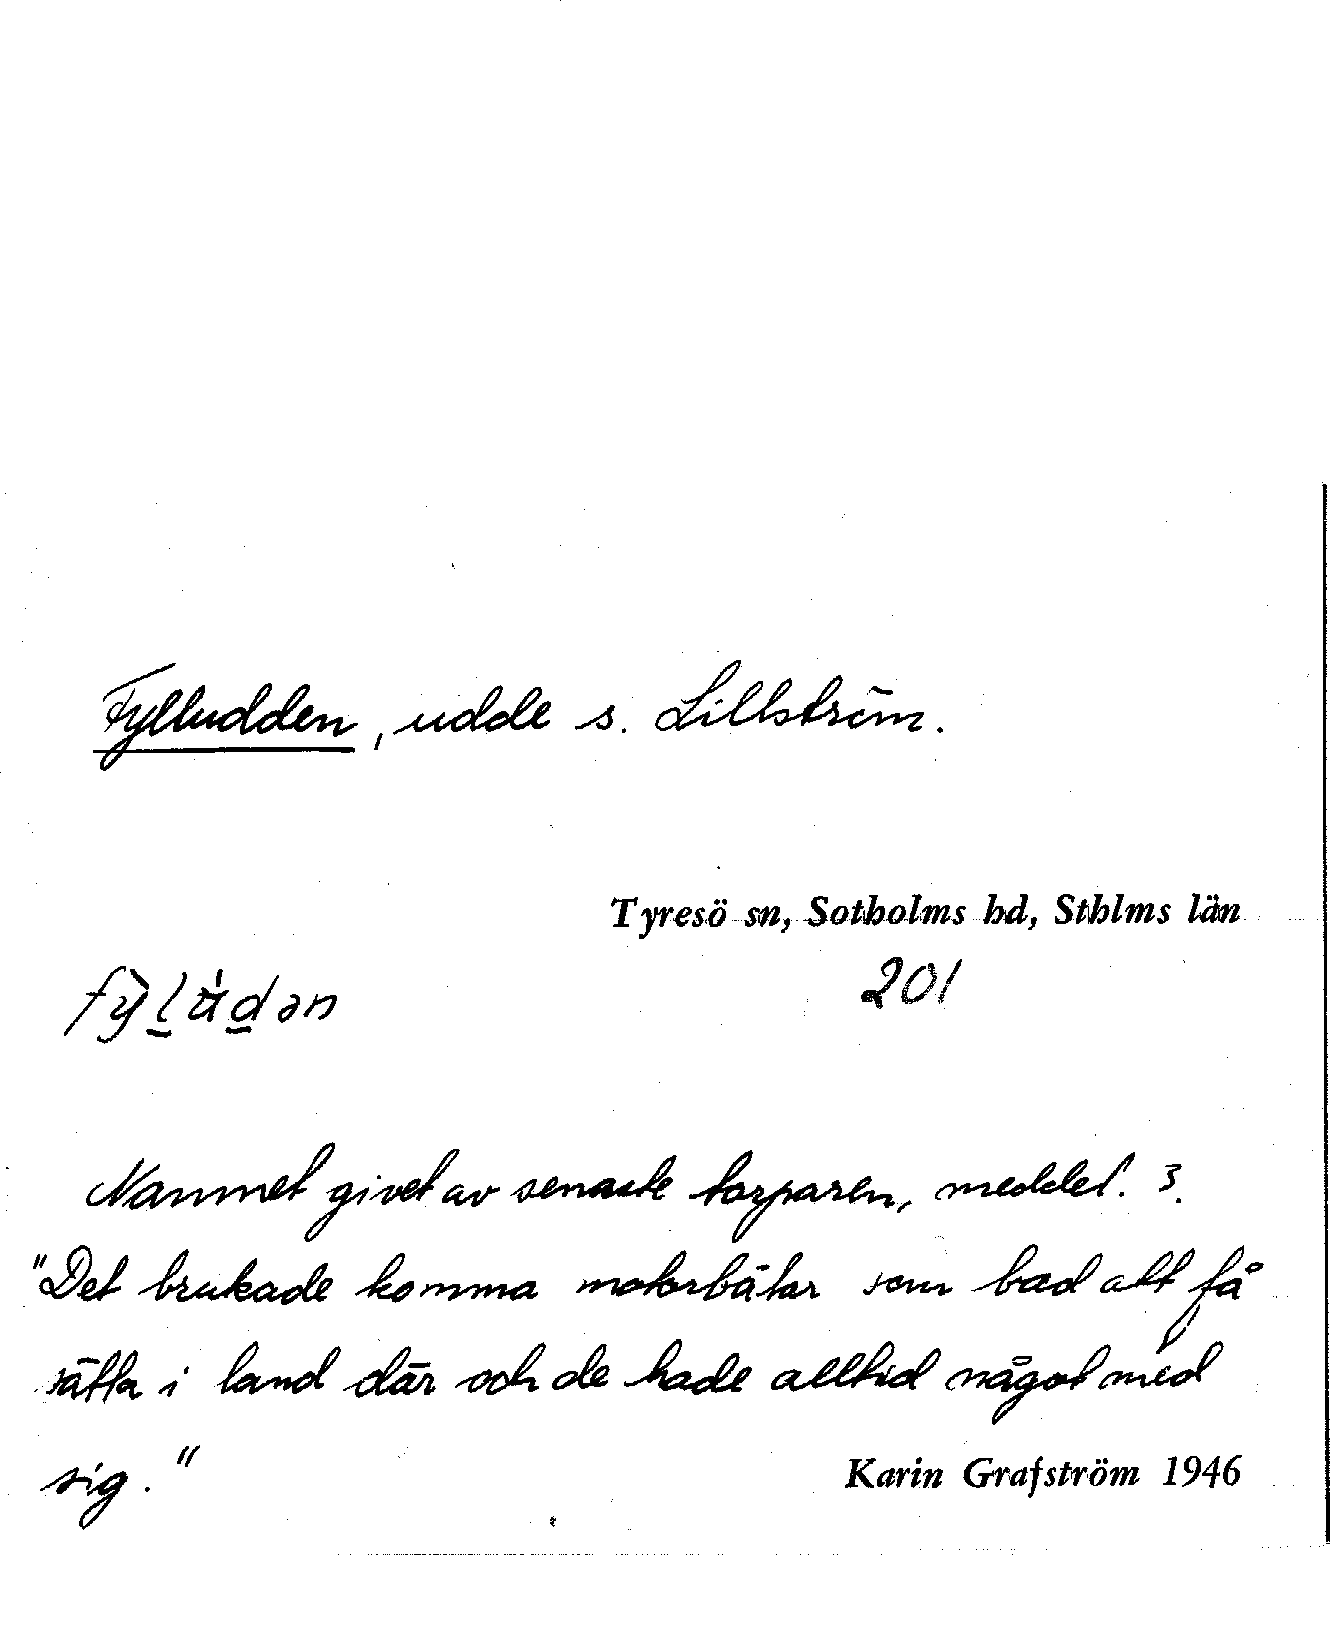 Fylludden, udde s. Lillström.
Tyresö sn, Sotholms hd, Sthlms län
fỳl̲ u̇d̲ən
201
Namnet givet av senaste torparen, meddel. 3.
"Det brukade komma motorbåtar som bad att få
sätta i land där och de hade alltid något med
sig."
Karin Grafström 1946